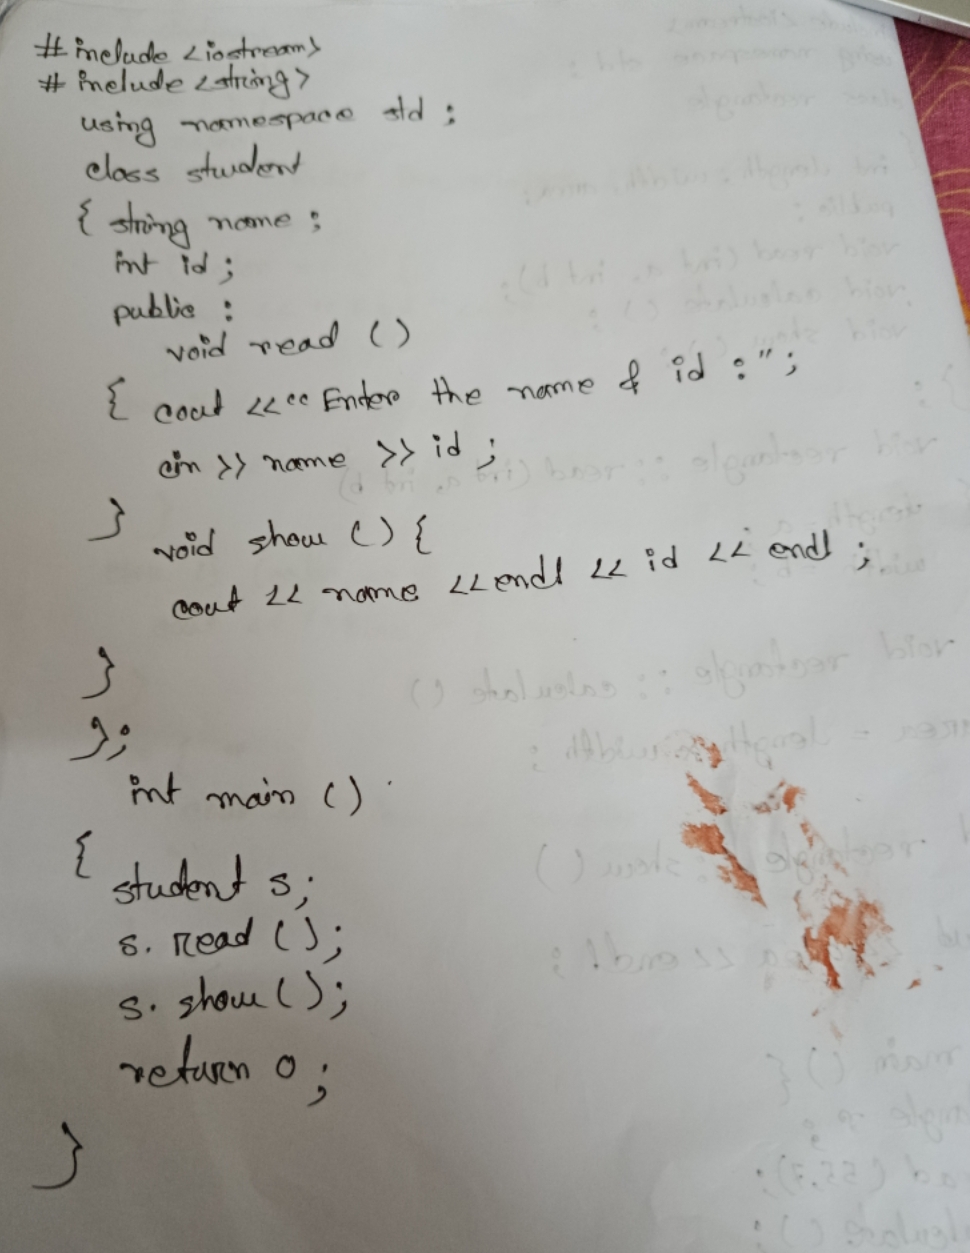 # include <iostream>
# include <string>
using namespace std ;
class student
{ string name ;
int id ;
public :
void read ()
{ cout <<" Enter the name & id : " ;
cin >> name >> id ;
}
void show () {
cout << name << endl << id << endl ;
}
};
int main ()
{
student s;
s. read ();
s. show ();
return 0 ;
}